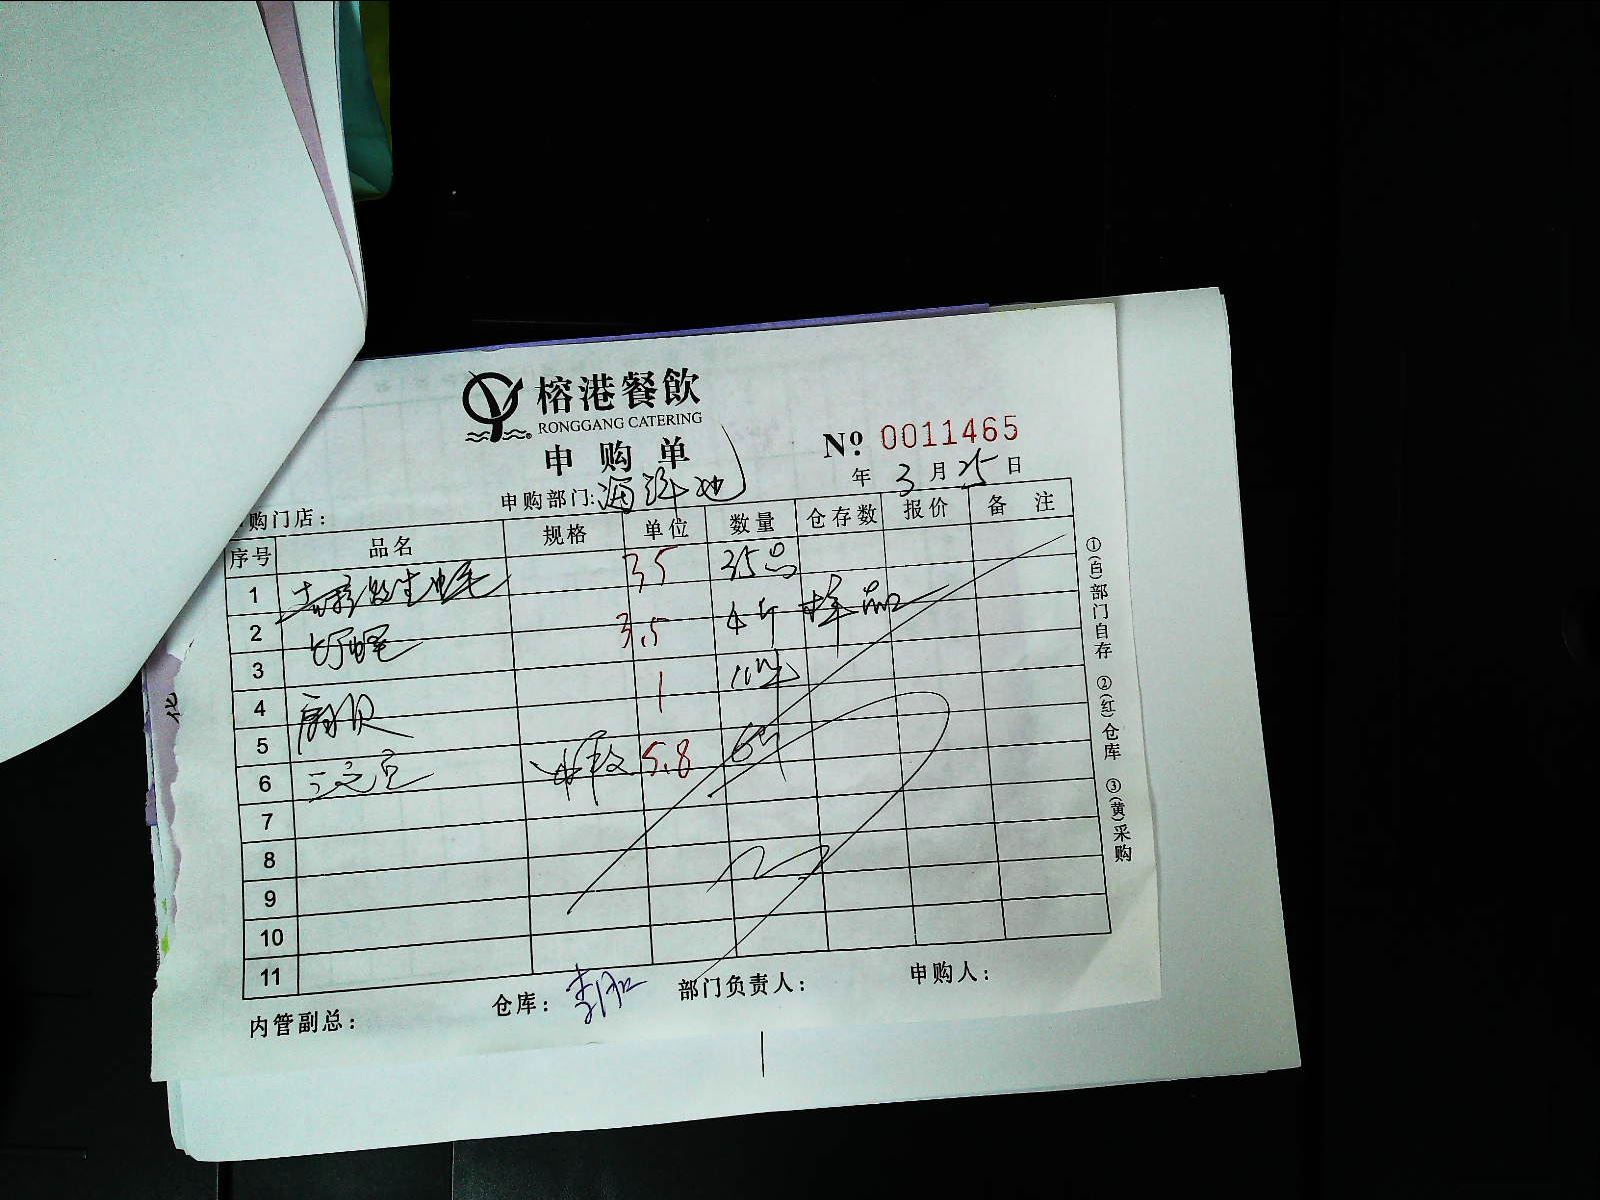 榕港餐飲
RONGGANG CATERING
申购单
№ 0011465
年 3 月 25 日
申购部门:海鲜池
购门店：
序号 品名 规格 单位 数量 仓存数 报价 备注
1 生蚝 35 35只
2 3.5 4斤 样品
3
4 扇贝 1
5
6 中段 5.8
7
8
9
10
11
内管副总： 仓库： 部门负责人： 申购人：
①(白)部门自存 ②(红)仓库 ③(黄)采购
化